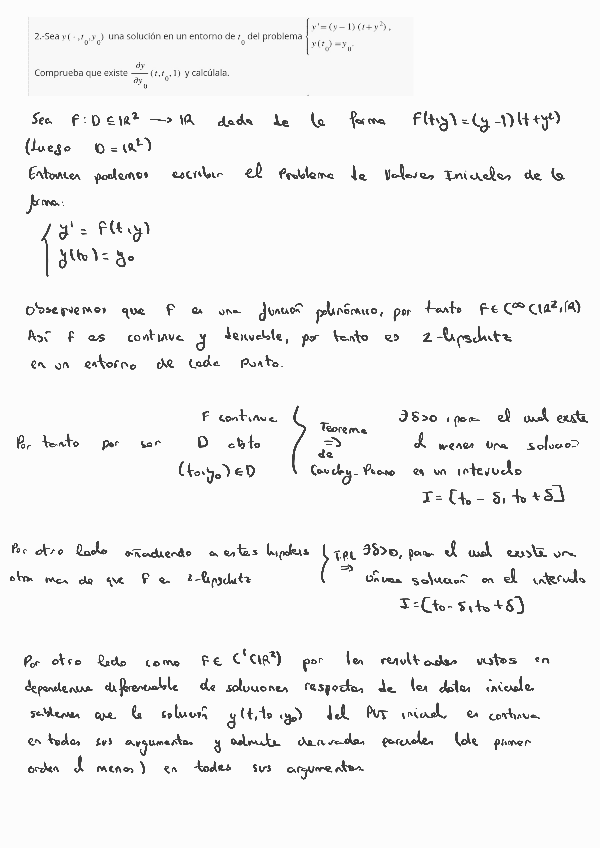 2.-Sea y(·,t₀,y₀) una solución en un entorno de t₀ del problema { y'=(y−1)(t+y²),
y(t₀)=y₀.
Comprueba que existe ∂y/∂y₀ (t,t₀,1) y calcúlala.
Sea F: D ⊆ IR² → IR dada de la forma F(t,y)=(y-1)(t+y²)
(Luego D = IR²)
Entonces podemos escribir el Problema de Valores Iniciales de la
forma:
{ y' = F(t,y)
y(t₀) = y₀
Observemos que F es una función polinómica, por tanto F ∈ C^∞(IR²,IR)
Así F es continua y derivable, por tanto es 2-lipschitz
en un entorno de cada punto.
F continua } Teorema ∃δ>0, para el cual existe
Por tanto por ser D abto ⇒ de al menos una solución
(t₀,y₀) ∈ D Cauchy-Peano en un intervalo
I = [t₀ - δ, t₀ + δ]
Por otro lado añadiendo a estas hipótesis { T.P.L ∃δ>0, para el cual existe una
otra mas de que F es 2-lipschitz ⇒ única solución en el intervalo
I = [t₀ - δ, t₀ + δ]
Por otro lado como F ∈ C¹(IR²) por los resultados vistos en
dependencia diferenciable de soluciones respectos de los datos iniciales
sabemos que la solución y(t,t₀,y₀) del PVI inicial es continua
en todos sus argumentos y admite derivadas parciales (de primer
orden al menos) en todos sus argumentos.